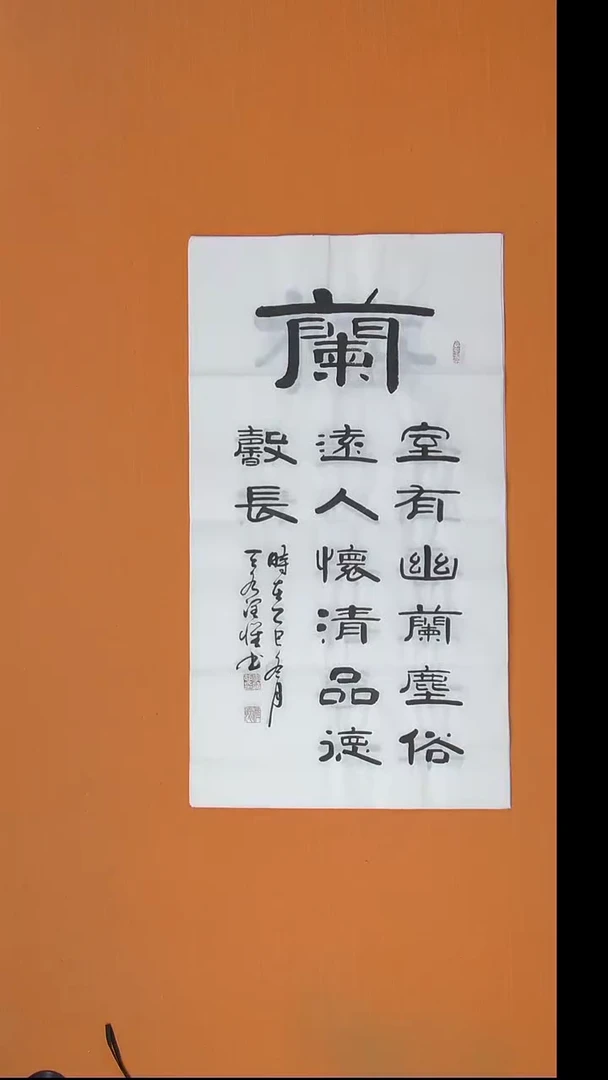 蘭
室有幽蘭塵俗
遠人懷清品德
馨長
時在乙巳冬月
书